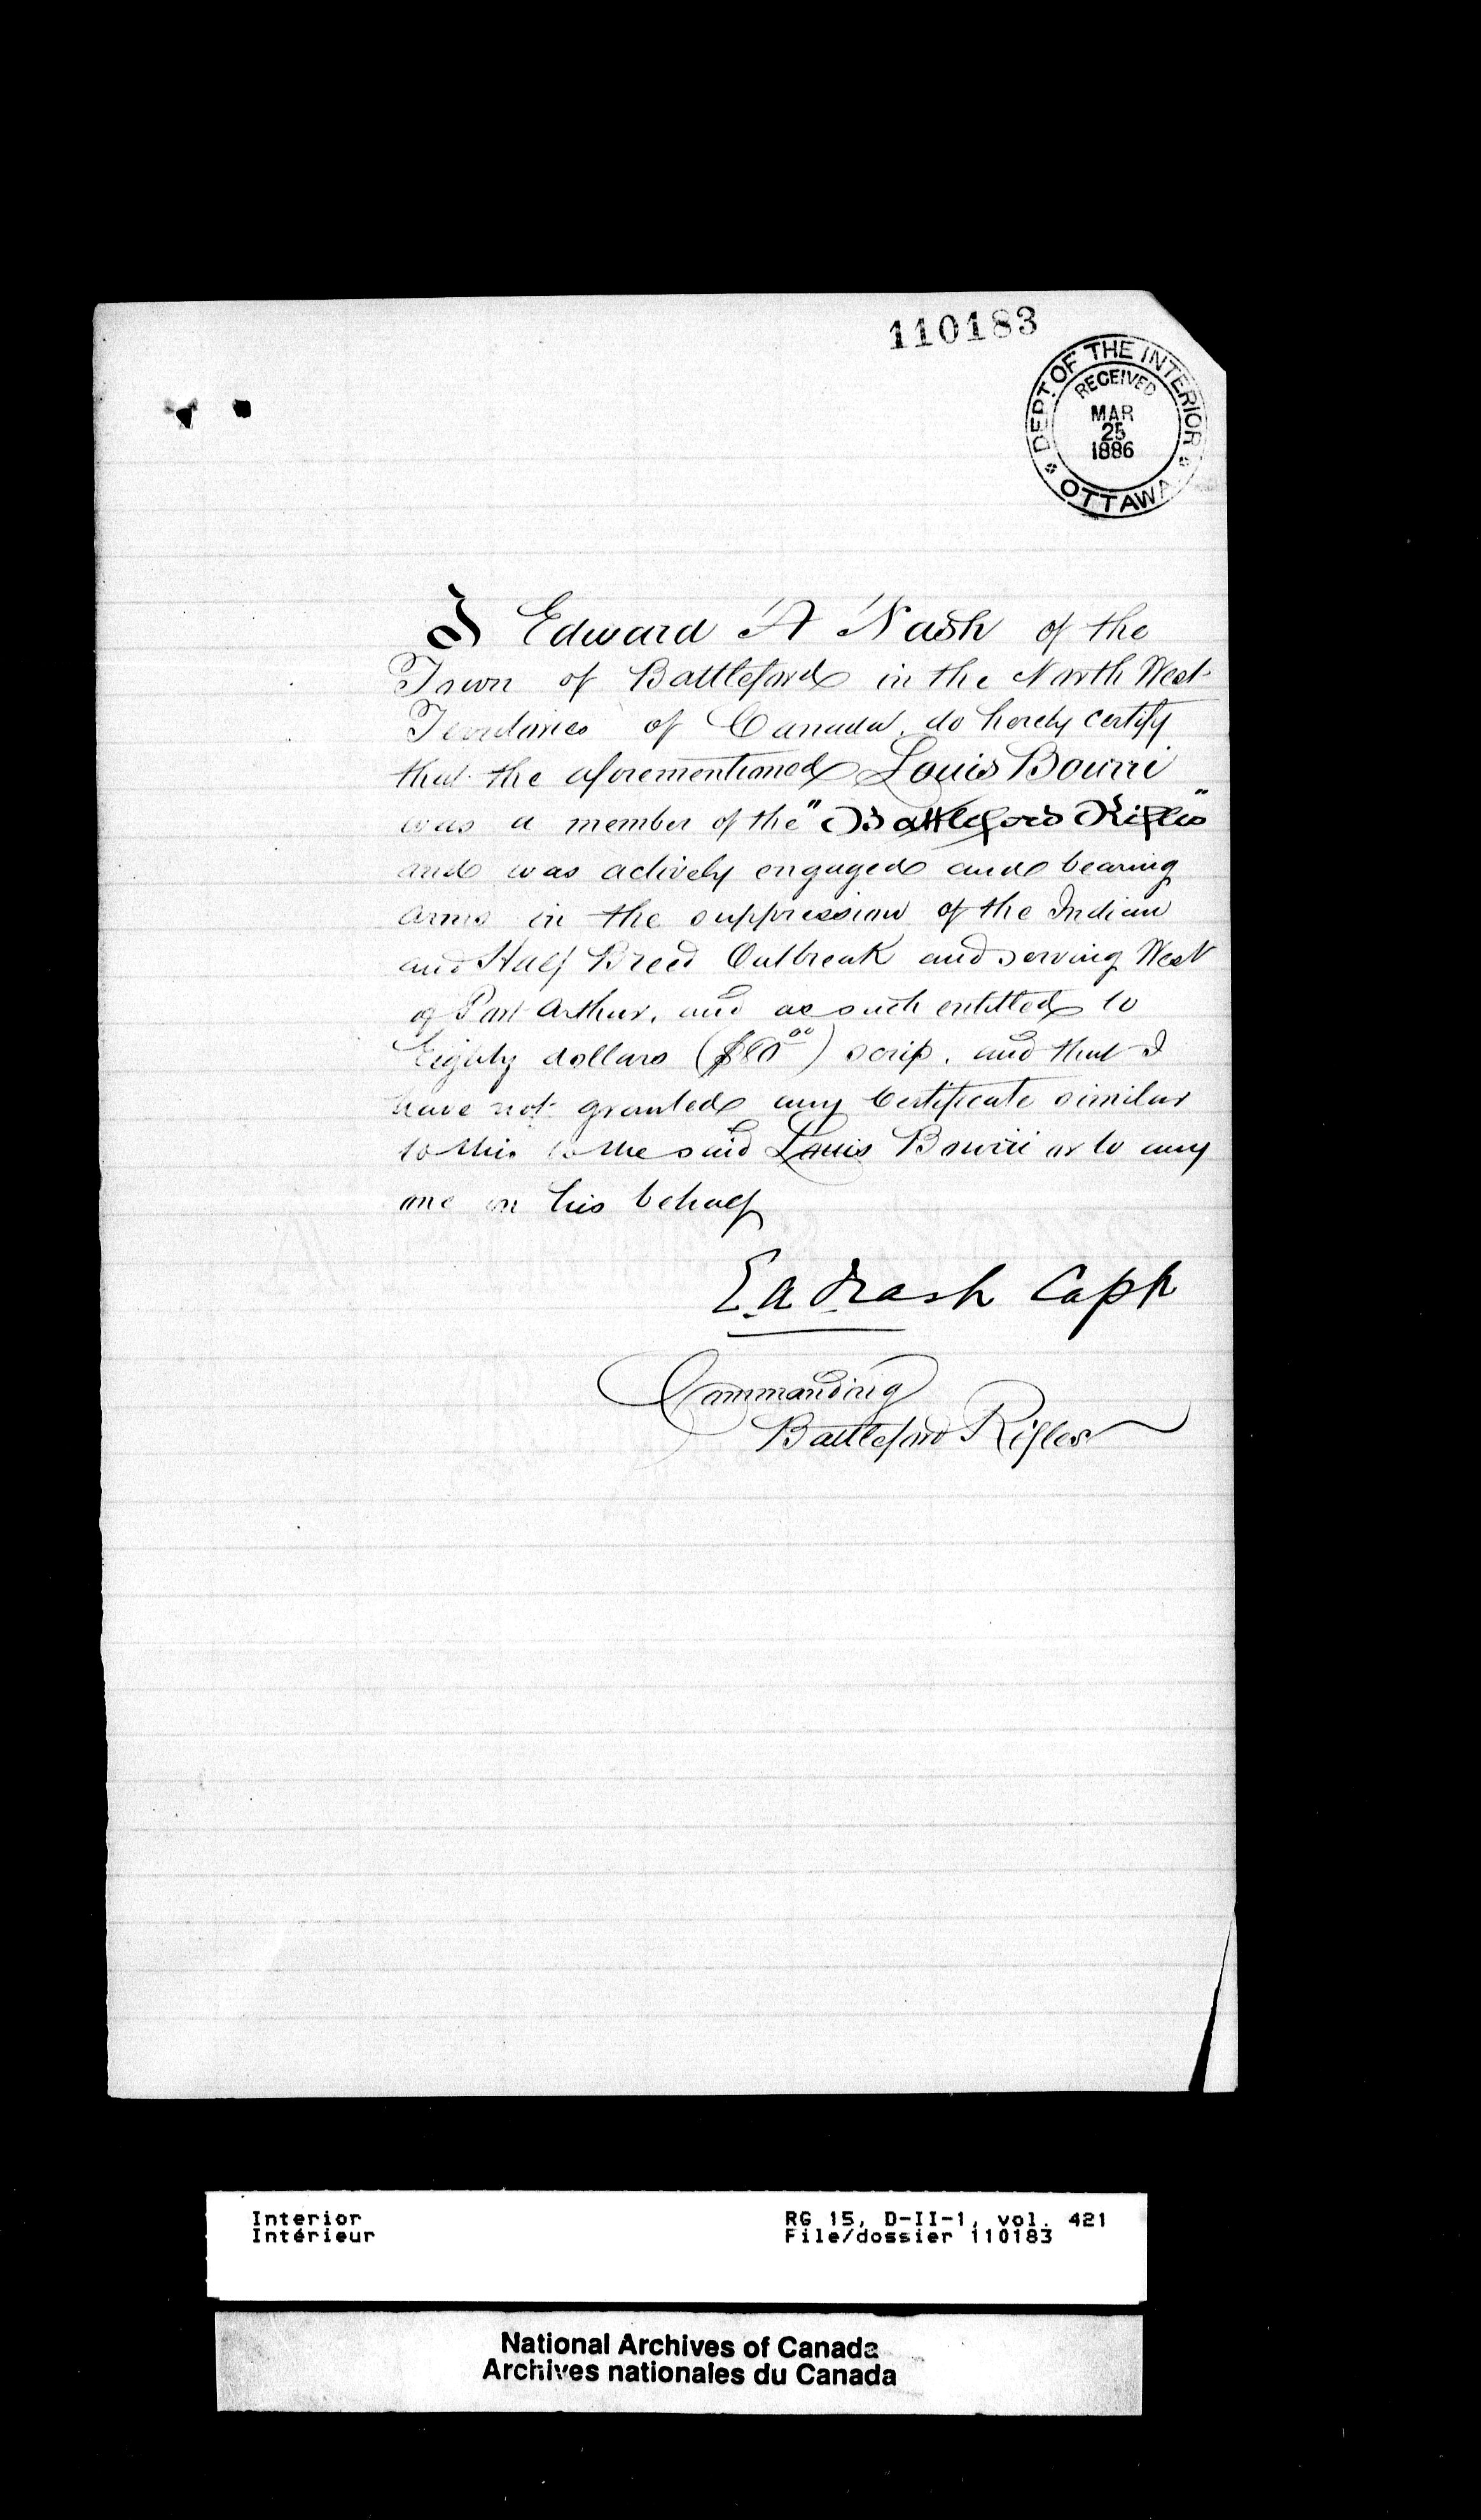 110183
DEPT OF THE INTERIOR
RECEIVED
MAR
25
1886
OTTAWA
I Edward A Nash of the
Town of Battleford in the North West
Territories of Canada, do hereby certify
that the aforementioned Louis Bourri
was a member of the "Battleford Rifles"
and was actively engaged and bearing
arms in the suppression of the Indian
and Half Breed Outbreak and serving West
of Port Arthur, and as such entitled to
Eighty dollars ($80.00) scrip. and that I
have not granted any Certificate similar
to this to the said Louis Bourri or to any
one on his behalf
E A Nash Capt
Commanding
Battleford Rifles
Interior
Intérieur
RG 15, D-II-1, vol. 421
File/dossier 110183
National Archives of Canada
Archives nationales du Canada